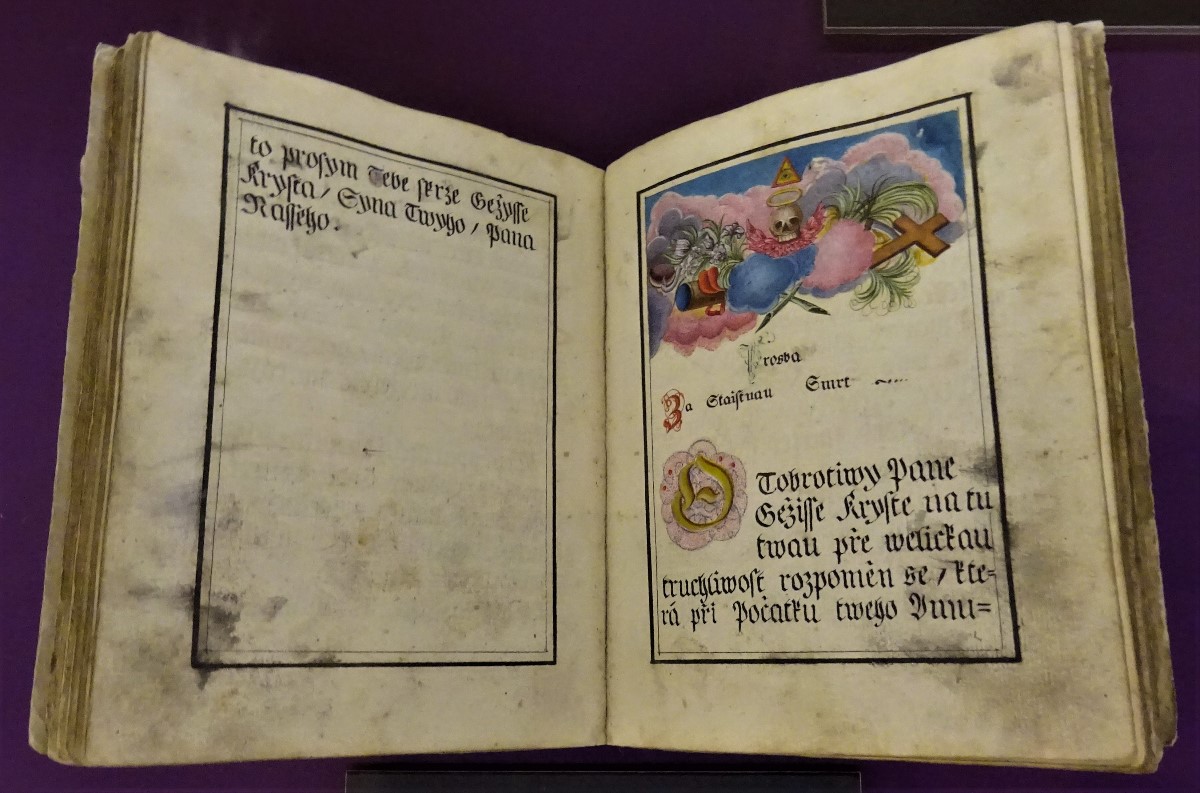 to prosym Tebe skrże Geżysse
Krysta / Syna Twyho / Pana
Nasseho.
Prosba
Za Staistnau Smrt
O Dobrotiwy Pane
Geżisse Kryste na tu
twau pře welickau
truchliwost rozpoměn se / kte=
rá při Počatku tweho Vmu=